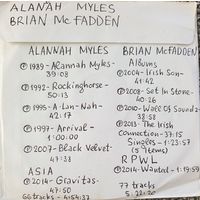 ALANAH MYLES
BRIAN McFADDEN
ALANNAH MYLES
℗1989-Alannah Myles-
39:08
℗1992-Rockinghorse-
50:13
℗1995-A-Lan-Nah-
42:17
℗1997-Arrival-
1:00:00
℗2007-Black Velvet-
47:38
ASIA
℗2014-Gravitas-
47:50
66 tracks - 4:54:37
BRIAN McFADDEN
Albums
℗2004-Irish Son-
41:42
℗2008-Set In Stone-
40:26
℗2010-Wall Of Soundz-
38:58
℗2013-The Irish
Connection-37:15
Singles-1:23:57
RPWL
℗2014-Wanted-1:19:59
77 tracks
5:22:20